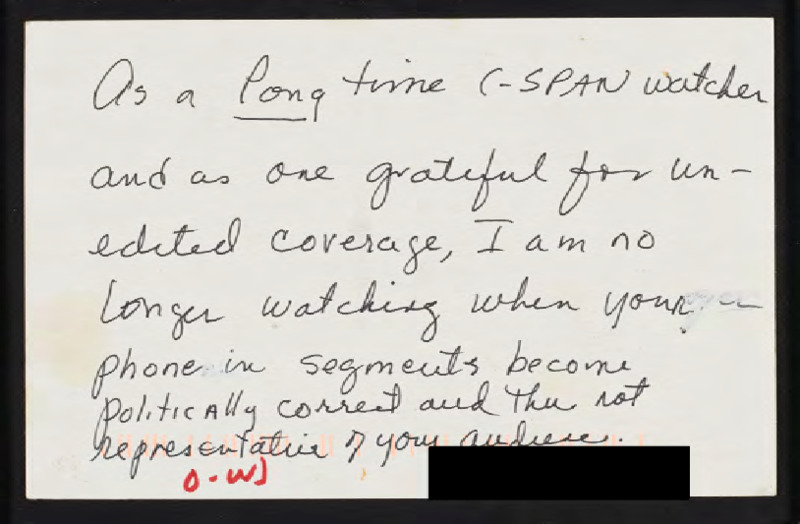 As a long time C-SPAN watcher
and as one grateful for un-
edited coverage, I am no
longer watching when your
phone in segments become
politically correct and thus not
representative of your audience.
O-W)